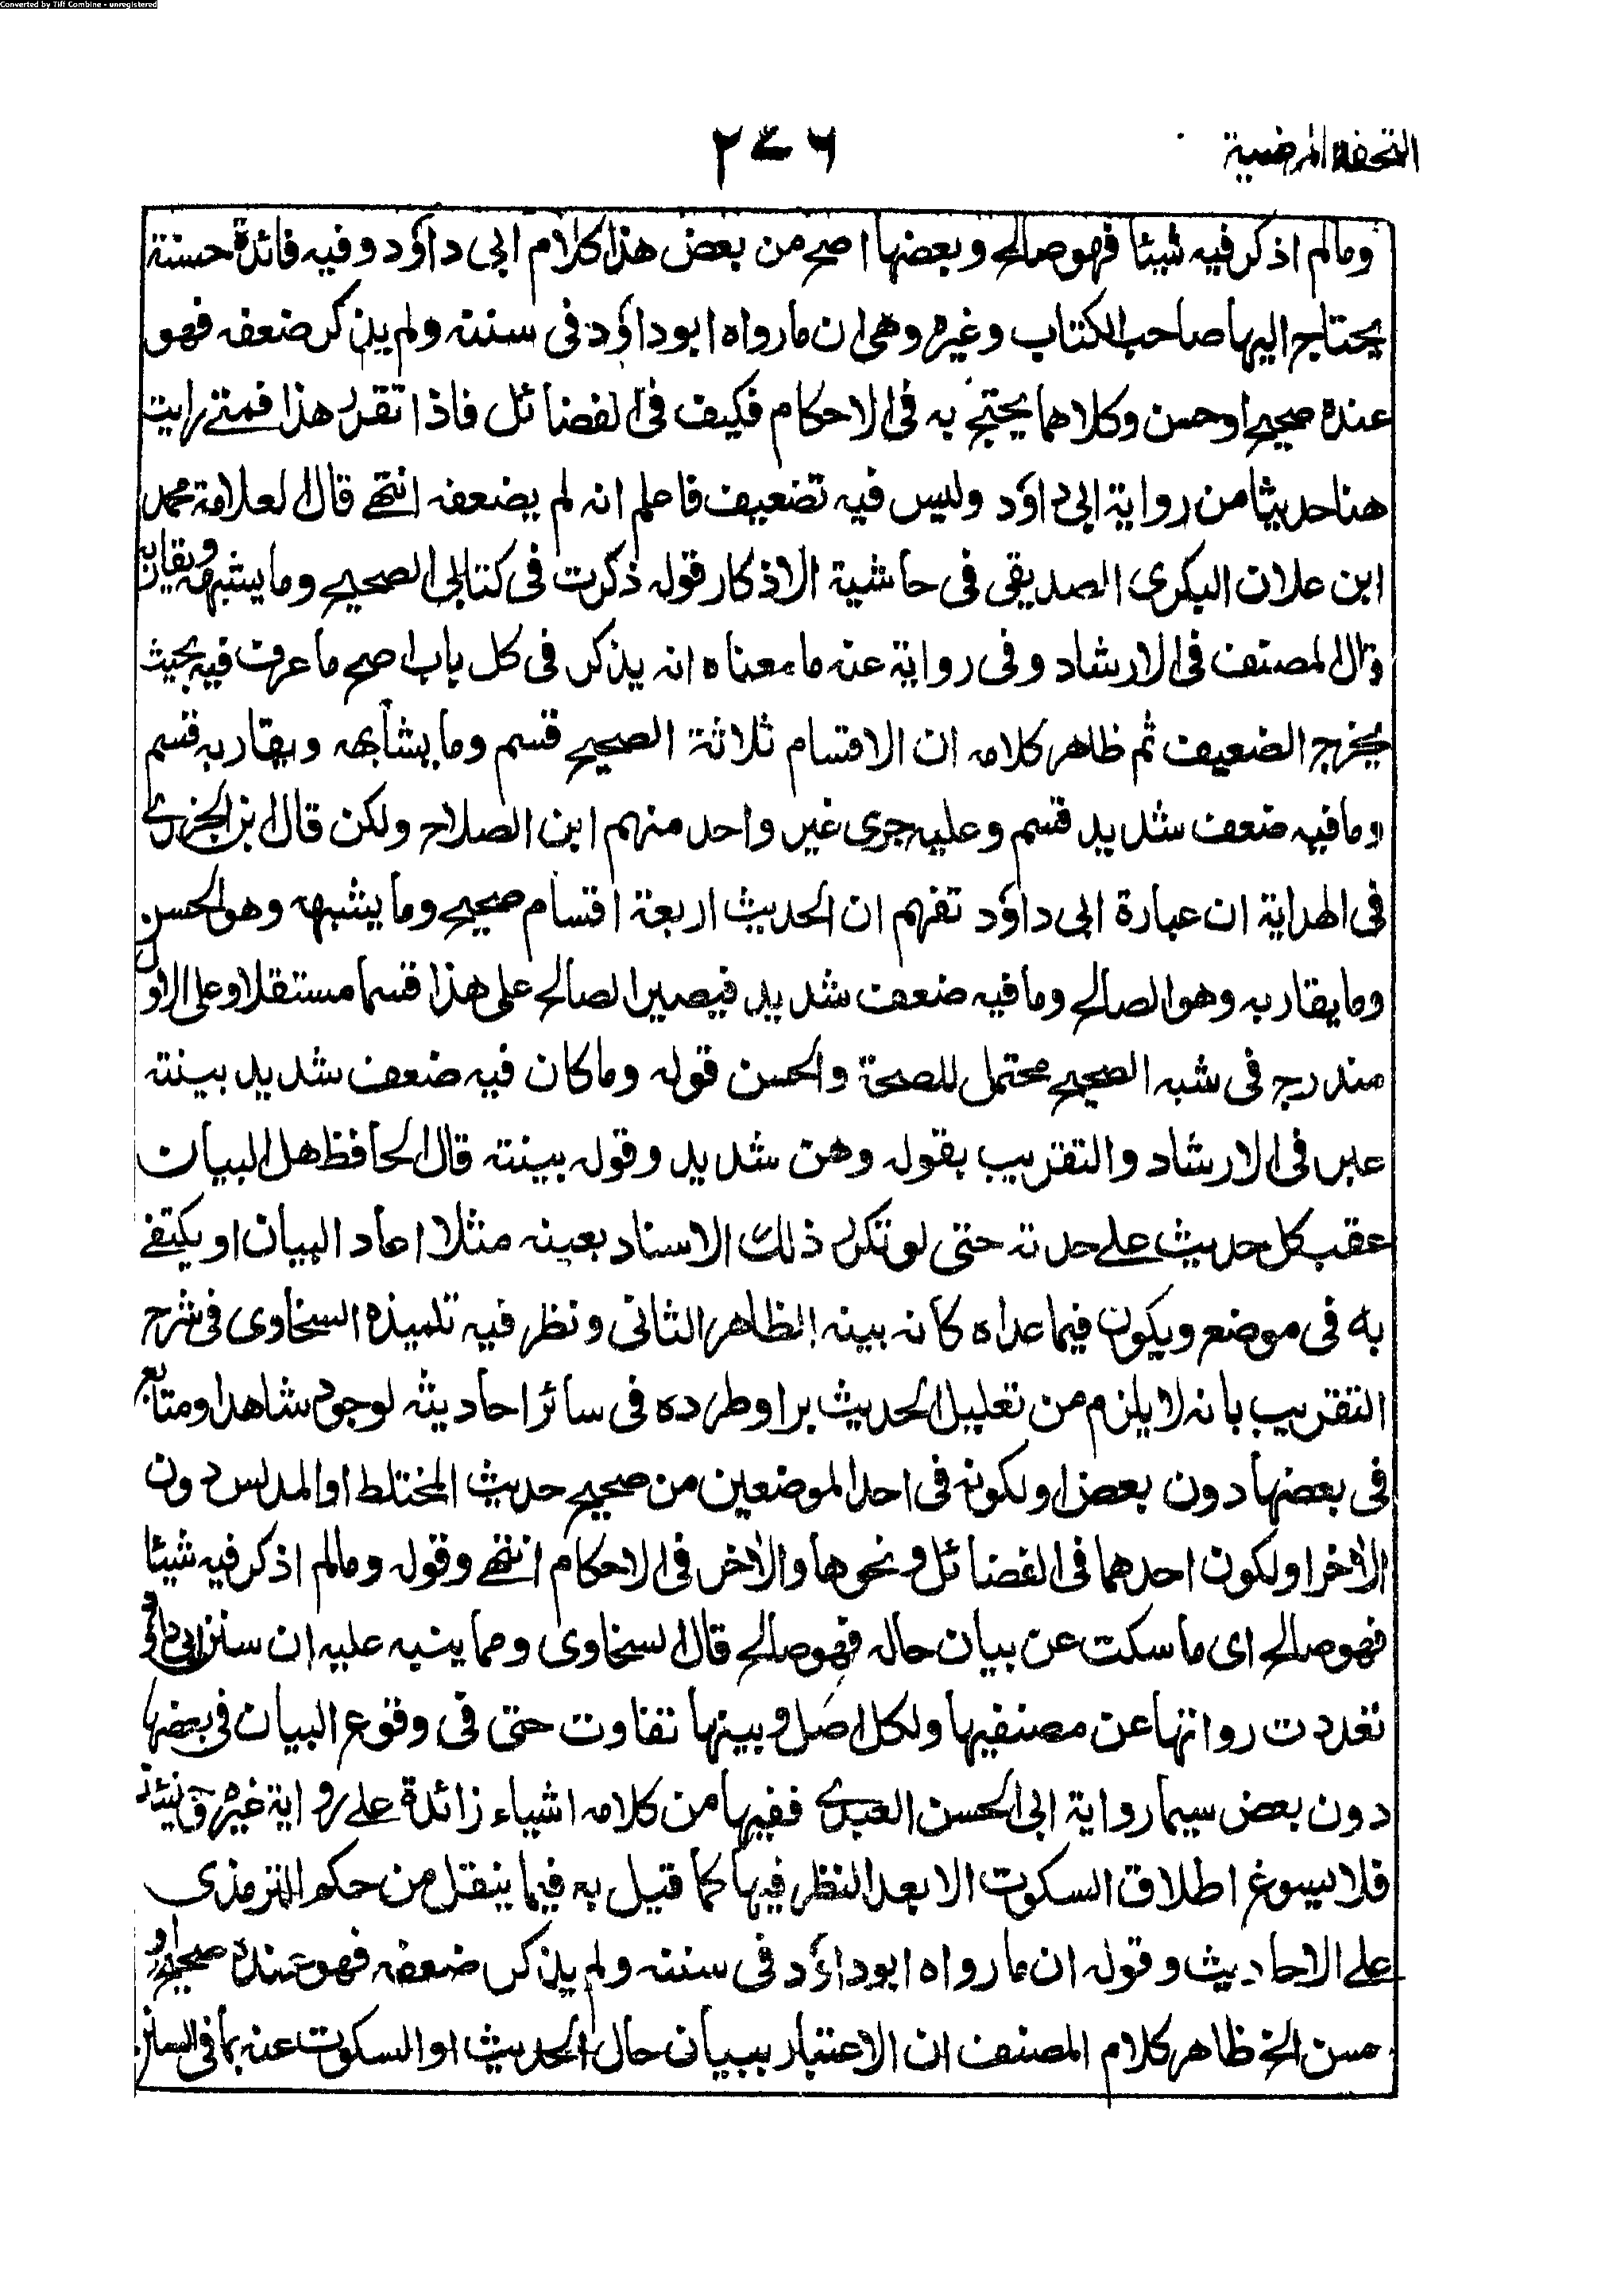 Converted by Tiff Combine - unregistered
التحفة المرضية
۲۷۶
ومالم اذكر فيه شيئا فهو صالح وبعضها اصح من بعض هذا كلام ابي داؤد وفيه فائدة حسنة
يحتاج اليها صاحب الكتاب وغيره وهى ان مارواه ابوداؤد فى سننه ولم يذكر ضعفه فهو
عنده صحيح اوحسن وكلاهما يحتج به فى الاحكام فكيف فى الفضائل فاذا تقرر هذا فمتے رايت
هنا حديثا من رواية ابى داؤد وليس فيه تضعيف فاعلم انه لم يضعفه انتهے قال العلامة محمد
ابن علان البكرى الصديقى فى حاشية الاذكار قوله ذكرت فى كتابى الصحيح ومايشبهه ويقاربه
وقال المصنف فى الارشاد وفى رواية عنه مامعناه انه يذكر فى كل باب اصح ما عرف فيه بحيث
يخرج الضعيف ثم ظاهر كلامه ان الاقسام ثلاثة الصحيح قسم ومايشابهه ويقاربه قسم
ومافيه ضعف شديد قسم وعليه جرى غير واحد منهم ابن الصلاح ولكن قال ابن الجزرے
فى الهداية ان عبارة ابى داؤد تفهم ان الحديث اربعة اقسام صحيح ومايشبهه وهو الحسن
ومايقاربه وهو الصالح ومافيه ضعف شديد فيصير الصالح على هذا قسما مستقلا وعلى الاول
مندرج فى شبه الصحيح محتمل للصحة والحسن قوله وماكان فيه ضعف شديد بينته
عبر فى الارشاد والتقريب بقوله وهن شديد وقوله بينته قال الحافظ هل البيان
عقب كل حديث علے حدته حتى لوتكرر ذلك الاسناد بعينه مثلا اعاد البيان او يكتفے
به فى موضع ويكون فيما عداه كانه بينه الظاهر الثانى ونظر فيه تلميذه السخاوى فى شرح
التقريب بانه لا يلزم من تعليل الحديث براو طرده فى سائر احاديثه لوجود شاهد او متابع
فى بعضها دون بعض او لكونه فى احد الموضعين من صحيح حديث المختلط او المدلس دون
الاخر او لكون احدهما فى الفضائل ونحوها والاخر فى الاحكام انتهے وقوله ومالم اذكر فيه شيئا
فهو صالح اى ماسكت عن بيان حاله فهو صالح قال السخاوى ومما ينبه عليه ان سنن ابى داؤد
تعددت رواتها عن مصنفيها ولكل اصل وبينها تفاوت حتى فى وقوع البيان فى بعضها
دون بعض سيما رواية ابى الحسن العبدے ففيها من كلامه اشياء زائدة علے رواية غيره
فلا يسوغ اطلاق السكوت الا بعد النظر فيها كما قيل به فيما ينقل من حكم الترمذى
علے الاحاديث وقوله ان مارواه ابوداؤد فى سننه ولم يذكر ضعفه فهو عنده صحيح او
حسن الخ ظاهر كلام المصنف ان الاعتبار ببيان حال الحديث او السكوت عنه بما فى السنن